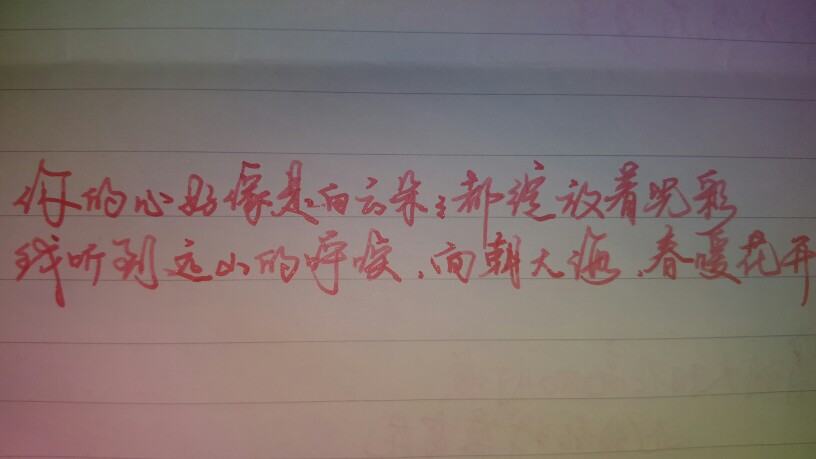 你的心好像是白云朵朵都绽放着光彩
我听到远山的呼唤、向朝大海、春暖花开